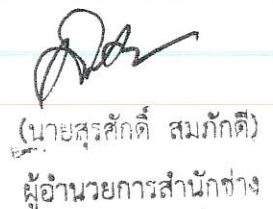 (นายสุรศักดิ์ สมภักดี)
ผู้อำนวยการสำนักช่าง